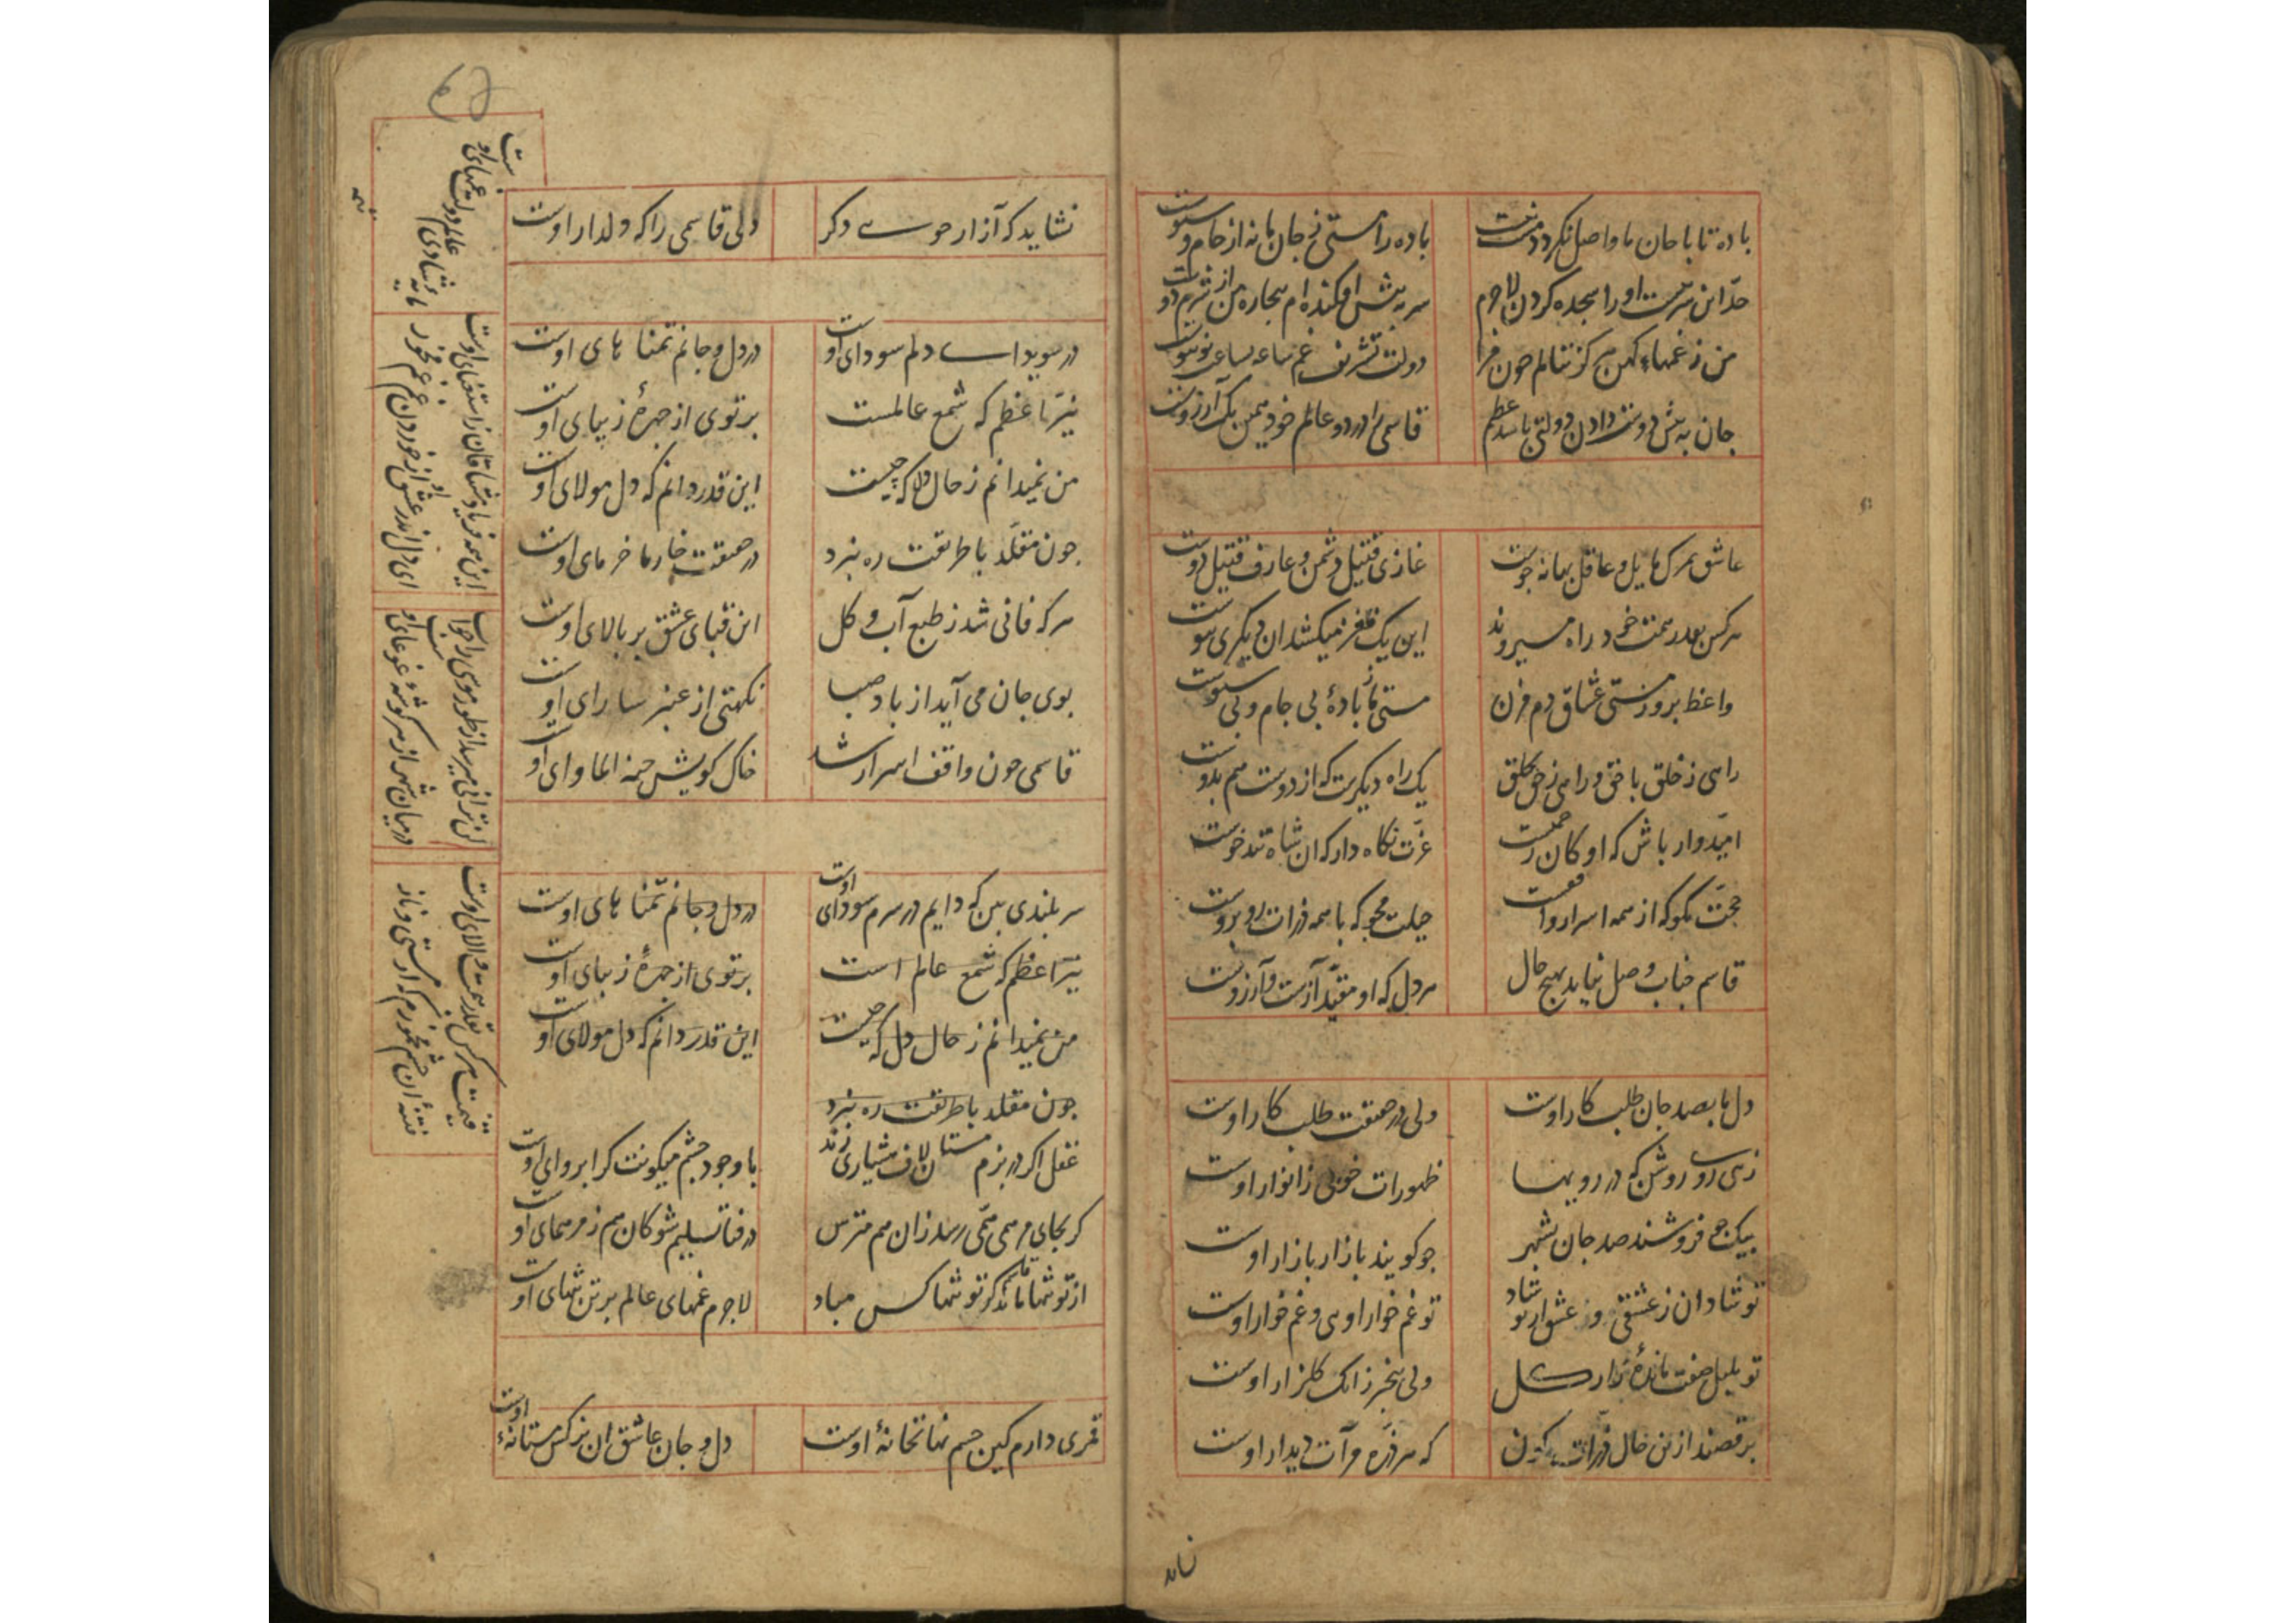 باده تا با جان ما واصل نکردد مست نیست
باده را مستی ز جان ما نه از جام و سبوست
سر به پیش افکنده‌ام بیچاره من از شرم دوست
من ز غمهاء کهن هرکز ننالم چون
دولت تشریف غم ساعه بساعت نو بنوست
جان به پیش دوست دادن دولتی باشد عظیم
قاسمی را در دو عالم خود همین یک آرزوست
عاشق بمرک مایل و عاقل بهانه جوست
غازی قتیل دشمن و عارف قتیل دوست
هرکس بقدر همت خود راه میروند
این یک ز مغز میکشد ان دیکری ز پوست
واعظ برو ز مستی عشاق دم مزن
مستی ما ز بادهٔ بی جام و بی سبوست
راهی ز خلق با حق و راهی ز حق بخلق
یک راه دیکرست که از دوست هم بدوست
امیدوار باش که او کان رحمتست
عزت نکاه دار که ان شاه تندخوست
حجت مکو که از همه اسرار واقفست
حیلت مجو که با همه ذرات روبروست
قاسم جناب وصل نیابد بهیچ حال
هر دل که او مقید آزست و آرزوست
دل ما بصد جان طلب کار اوست
ولی در حقیقت طلب کار اوست
زهی روے روشن که در رو بها
ظهورات خوبی ز انوار اوست
بیک جو فروشند صد جان بشهر
چو کویند بازار بازار اوست
تو شادان ز عشقی و عشق از تو شاد
تو غم خوار اویی و غم خوار اوست
تو بلبل صفت ماندهٔ زار کل
ولی بیخبر زانک کلزار اوست
برقصند ازین حال ذرات کون
که هر ذره مرآت دیدار اوست
نشاید که آزار جوے دکر
دلی قاسمی را که دلدار اوست
در سویداے دلم سودای اوست
در دل و جانم تمنا های اوست
نیر اعظم که شمع عالمست
پرتوی از چهرهٔ زیبای اوست
من نمیدانم ز حال دل که چیست
این قدر دانم که دل مولای اوست
چون مقلد با طریقت ره نبرد
در حقیقت خار ما خرمای اوست
هرکه فانی شد ز طبع آب و کل
این قبای عشق بر بالای اوست
بوی جان می آید از باد صبا
نکهتی از عنبر سارای اوست
قاسمی چون واقف اسرار شد
خاک کویش جنة الماوای اوست
سربلندی بین که دایم در سرم سودای اوست
در دل و جانم تمنا های اوست
نیر اعظم که شمع عالم است
پرتوی از چهرهٔ زیبای اوست
من نمیدانم ز حال دل که چیست
این قدر دانم که دل مولای اوست
چون مقلد با طریقت ره نبرد
عقل اکر در بزم مستان لاف هشیاری زند
با وجود چشم میکونت کرا پروای اوست
کر بجای مرهمی زخمی رسد زان هم مترس
در فنا تسلیم شو کان هم ز مرهمهای اوست
از تو تنها ماند کز تو تنها کس مباد
لاجرم غمهای عالم بر تن تنهای اوست
قمری دارم کین چشم نهانخانهٔ اوست
دل و جان عاشق ان نرکس مستانهٔ اوست
این همه فریاد مشتاقان ز استغنای اوست
لن ترانی میرسد از طور موسی را جواب
در میان شهر از هر کوشهٔ غوغای اوست
قیمت هرکس بقدر همت والای اوست
فتنهٔ ان چشم مخمورم که از مستی و ناز
ای دل اندر عشق او از خوردن غم غم مخور
مایهٔ شادی عالم دولت غمهای اوست
نشاید